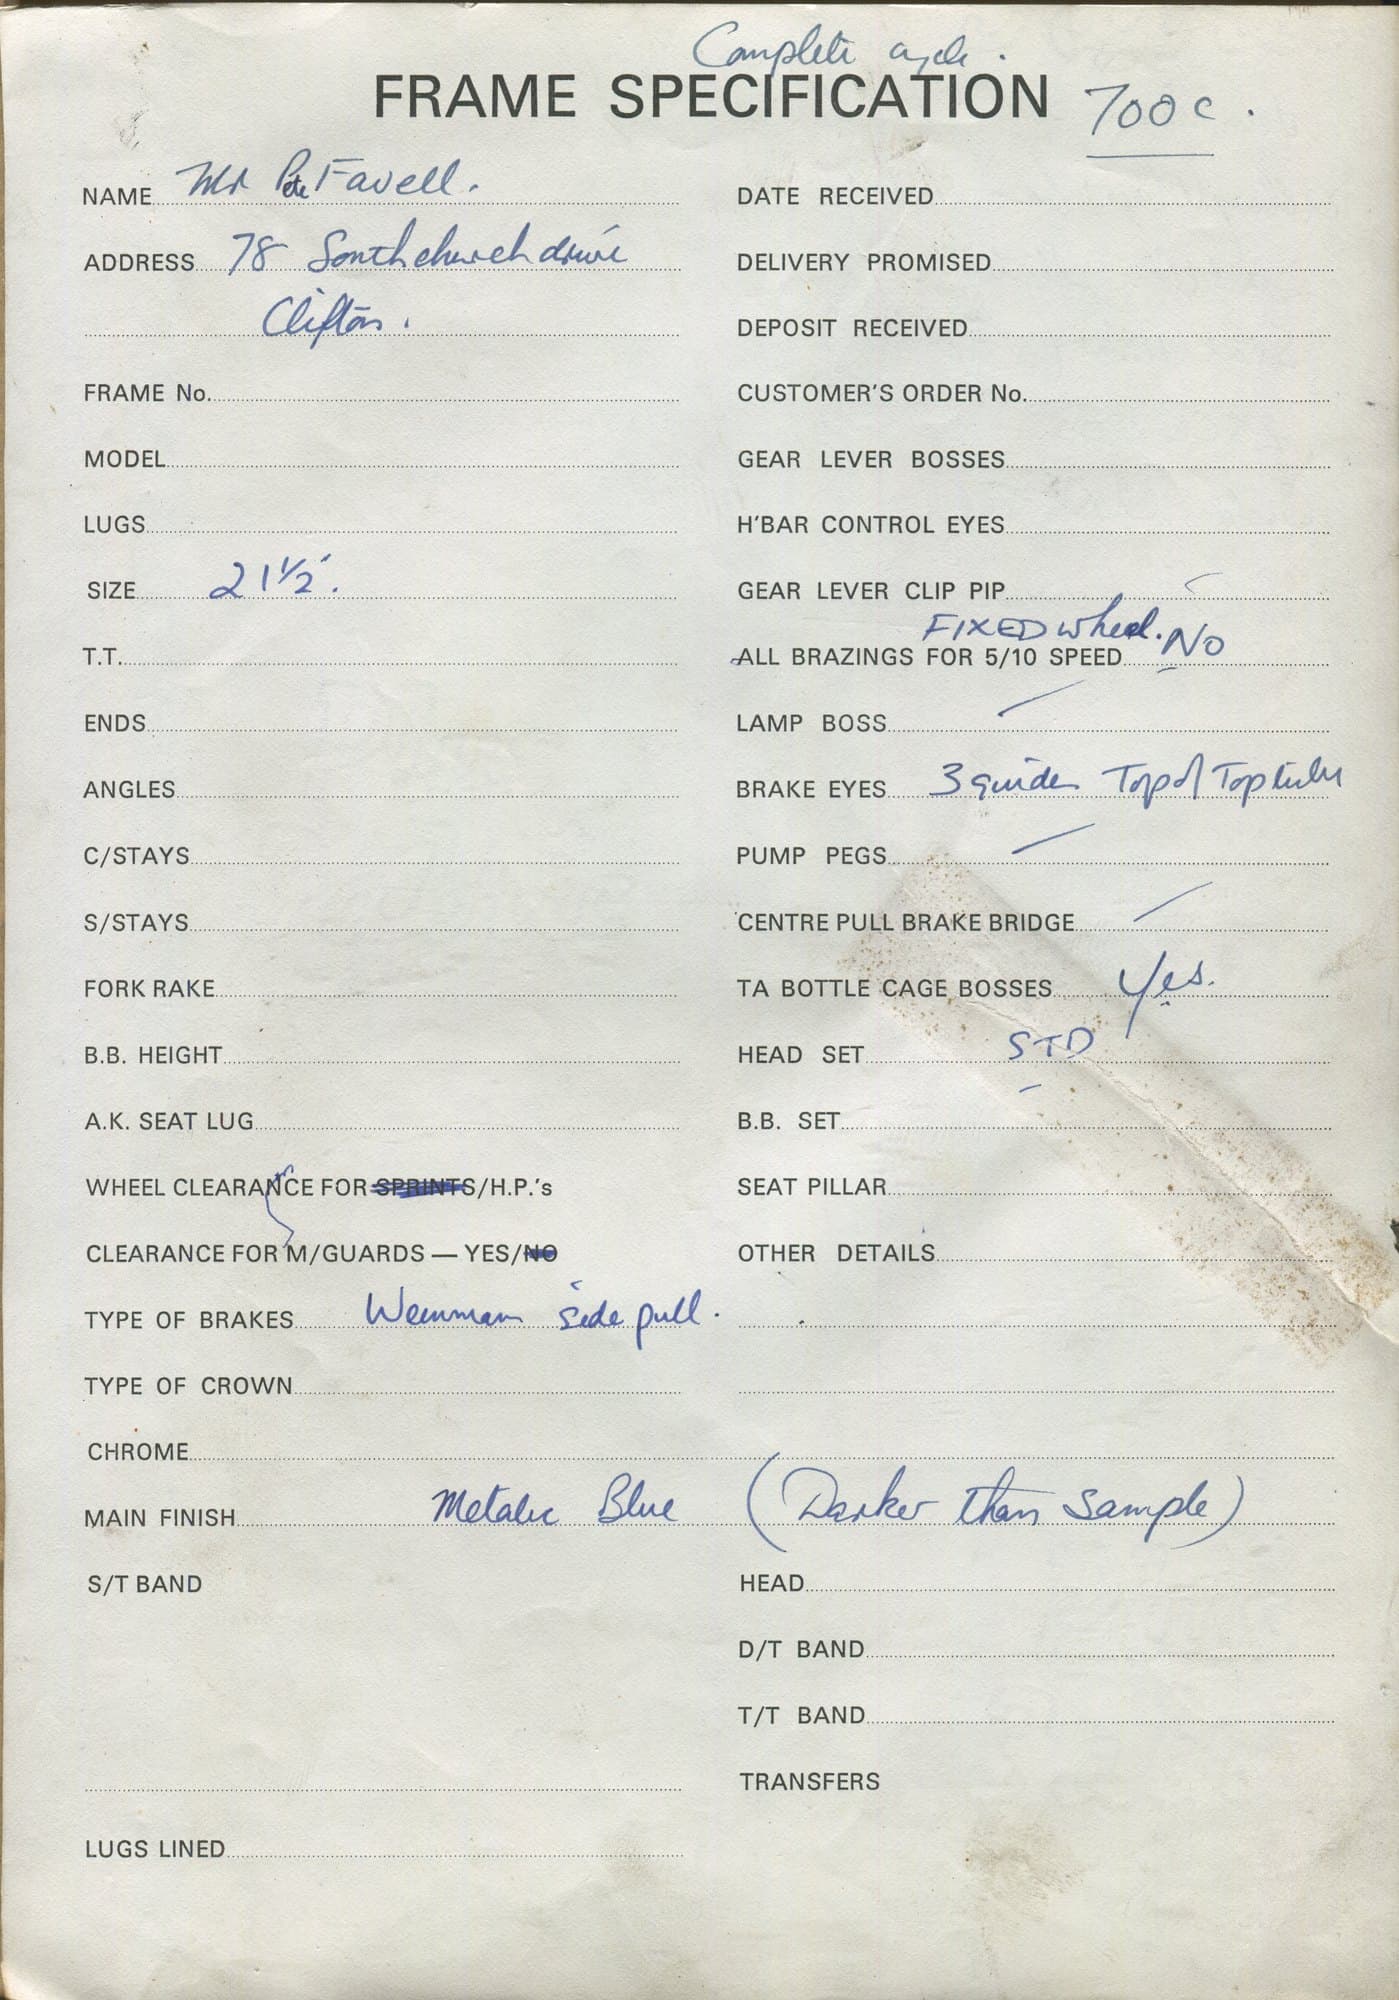 Complete cycle.
FRAME SPECIFICATION 700c.
NAME Mr Pete Favell.
ADDRESS 78 Southchurch drive
Clifton.
FRAME No.
MODEL
LUGS
SIZE 21 1/2".
T.T.
ENDS
ANGLES
C/STAYS
S/STAYS
FORK RAKE
B.B. HEIGHT
A.K. SEAT LUG
WHEEL CLEARANCE FOR SPRINTS/H.P.'s
CLEARANCE FOR M/GUARDS — YES/NO
TYPE OF BRAKES Weinmann side pull.
TYPE OF CROWN
CHROME
MAIN FINISH Metalic Blue (Darker than sample)
S/T BAND
LUGS LINED
DATE RECEIVED
DELIVERY PROMISED
DEPOSIT RECEIVED
CUSTOMER'S ORDER No.
GEAR LEVER BOSSES
H'BAR CONTROL EYES
GEAR LEVER CLIP PIP
FIXED wheel.
ALL BRAZINGS FOR 5/10 SPEED No
LAMP BOSS
BRAKE EYES 3 guides Top of Top tube
PUMP PEGS
CENTRE PULL BRAKE BRIDGE
TA BOTTLE CAGE BOSSES Yes.
HEAD SET STD
B.B. SET
SEAT PILLAR
OTHER DETAILS
HEAD
D/T BAND
T/T BAND
TRANSFERS